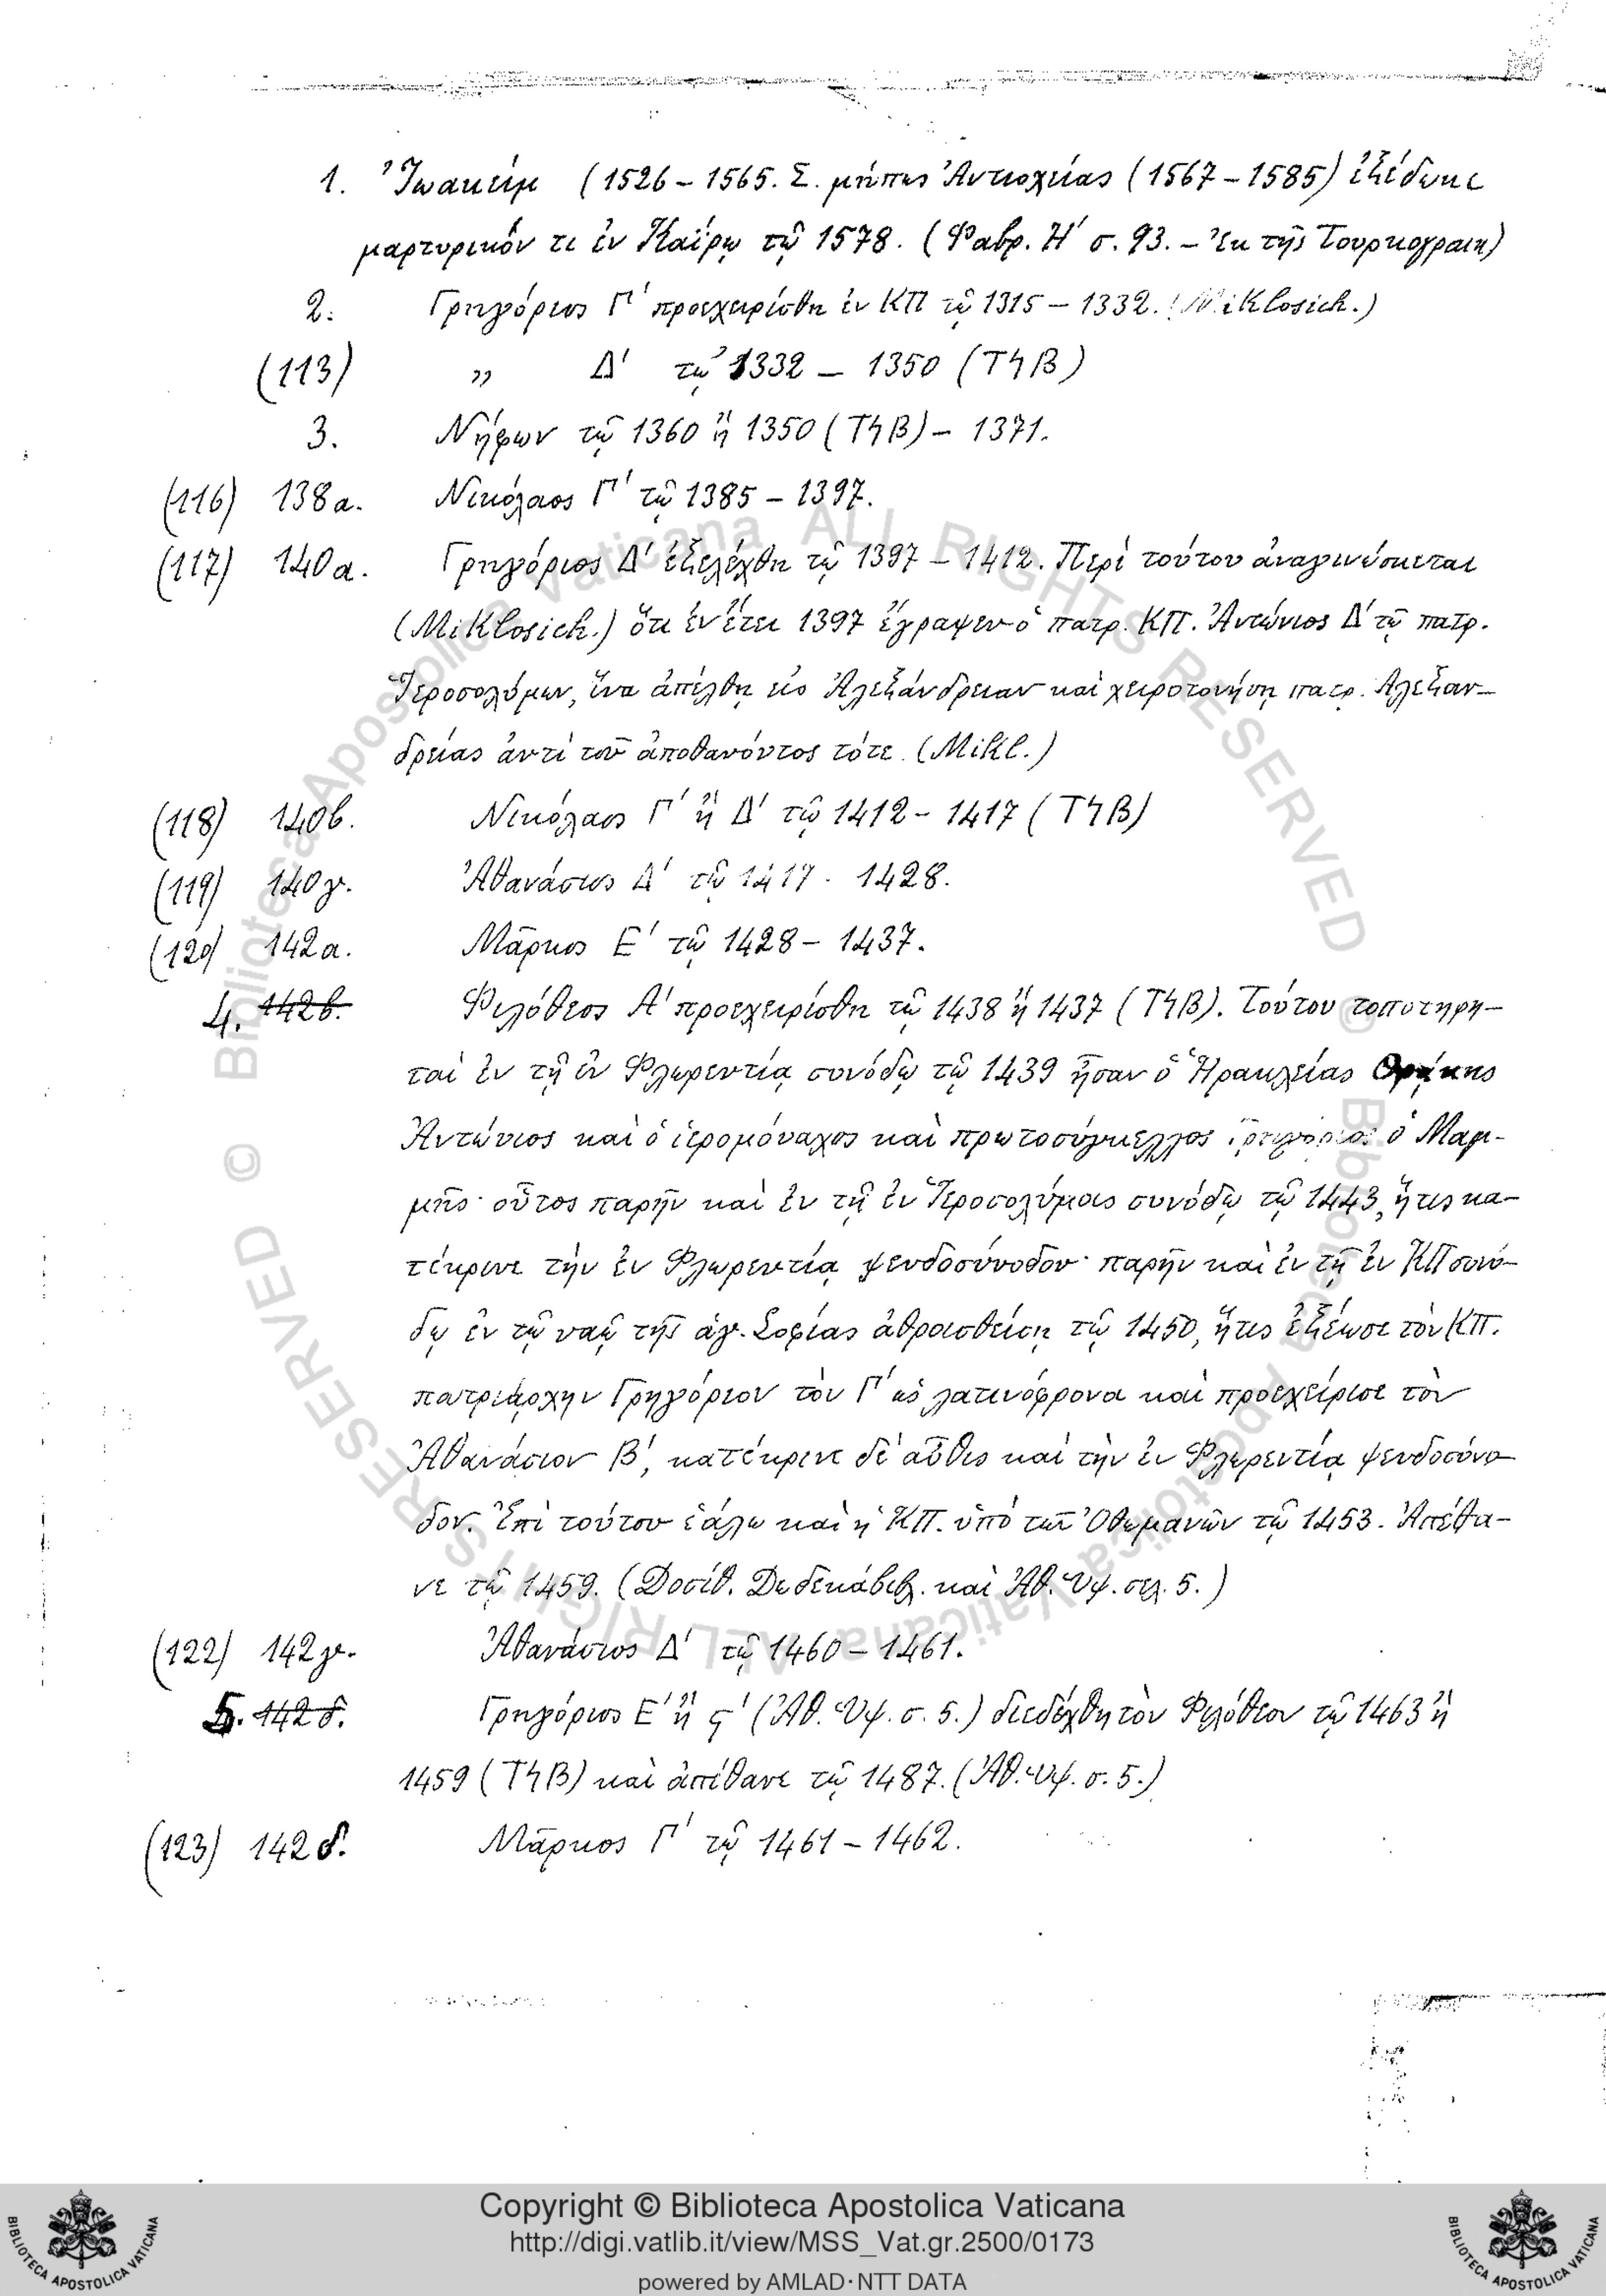 1. Ἰωακείμ (1526 – 1565. Σ. μήπως Ἀντιοχείας (1567 – 1585) ἐξέδωκε
μαρτυρικόν τι ἐν Καΐρῳ τῷ 1578. (Φαβρ. Η΄ σ. 93. – Ἐκ τῆς Τουρκογραικ)
2. Γρηγόριος Γ΄ προεχειρίσθη ἐν ΚΠ τῷ 1315 – 1332. (Miklosich.)
(113) „ Δ΄ τῷ 1332 – 1350 (ΤϞΒ)
3. Νήφων τῷ 1360 ἢ 1350 (ΤϞΒ) – 1371.
(116) 138α. Νικόλαος Γ΄ τῷ 1385 – 1397.
(117) 140α. Γρηγόριος Δ΄ ἐξελέχθη τῷ 1397 – 1412. Περὶ τούτου ἀναγινώσκεται
(Miklosich.) ὅτι ἐν ἔτει 1397 ἔγραψεν ὁ πατρ. ΚΠ. Ἀντώνιος Δ΄ τῷ πατρ.
Ἱεροσολύμων, ἵνα ἀπέλθῃ εἰς Ἀλεξάνδρειαν καὶ χειροτονήσῃ πατρ. Ἀλεξαν–
δρείας ἀντὶ τοῦ ἀποθανόντος τότε. (Mikl.)
(118) 140β. Νικόλαος Γ΄ ἢ Δ΄ τῷ 1412 – 1417 (ΤϞΒ)
(119) 140γ. Ἀθανάσιος Δ΄ τῷ 1417 – 1428.
(120) 142α. Μᾶρκος Ε΄ τῷ 1428 – 1437.
4. 142β. Φιλόθεος Α΄ προεχειρίσθη τῷ 1438 ἢ 1437 (ΤϞΒ). Τούτου τοποτηρη–
ταὶ ἐν τῇ ἐν Φλωρεντίᾳ συνόδῳ τῷ 1439 ἦσαν ὁ Ἡρακλείας Θρᾴκης
Ἀντώνιος καὶ ὁ ἱερομόναχος καὶ πρωτοσύγκελλος Γρηγόριος ὁ Μαμ–
μῆς· οὗτος παρῆν καὶ ἐν τῇ ἐν Ἱεροσολύμοις συνόδῳ τῷ 1443, ἥτις κα–
τέκρινε τὴν ἐν Φλωρεντίᾳ ψευδοσύνοδον· παρῆν καὶ ἐν τῇ ἐν ΚΠ συνό–
δῳ ἐν τῷ ναῷ τῆς ἁγ. Σοφίας ἀθροισθείσῃ τῷ 1450, ἥτις ἐξέωσε τὸν ΚΠ.
πατριάρχην Γρηγόριον τὸν Γ΄ ὡς λατινόφρονα καὶ προεχείρισε τὸν
Ἀθανάσιον Β΄, κατέκρινε δὲ αὖθις καὶ τὴν ἐν Φλωρεντίᾳ ψευδοσύνο–
δον. Ἐπὶ τούτου ἑάλω καὶ ἡ ΚΠ. ὑπὸ τῶν Ὀθωμανῶν τῷ 1453. Ἀπέθα–
νε τῷ 1459. (Δοσίθ. Δωδεκάβιβλ. καὶ Ἀθ. Ὑψ. σελ. 5.)
(122) 142γ. Ἀθανάσιος Δ΄ τῷ 1460 – 1461.
5. 142δ. Γρηγόριος Ε΄ ἢ ς΄ (Ἀθ. Ὑψ. σ. 5.) διεδέχθη τὸν Φιλόθεον τῷ 1463 ἢ
1459 (ΤϞΒ) καὶ ἀπέθανε τῷ 1487. (Ἀθ. Ὑψ. σ. 5.)
(123) 142δ. Μᾶρκος Γ΄ τῷ 1461 – 1462.
© Biblioteca Apostolica Vaticana ALL RIGHTS RESERVED
© Biblioteca Apostolica Vaticana ALL RIGHTS RESERVED
Copyright © Biblioteca Apostolica Vaticana
http://digi.vatlib.it/view/MSS_Vat.gr.2500/0173
powered by AMLAD·NTT DATA
BIBLIOTECA APOSTOLICA VATICANA
BIBLIOTECA APOSTOLICA VATICANA